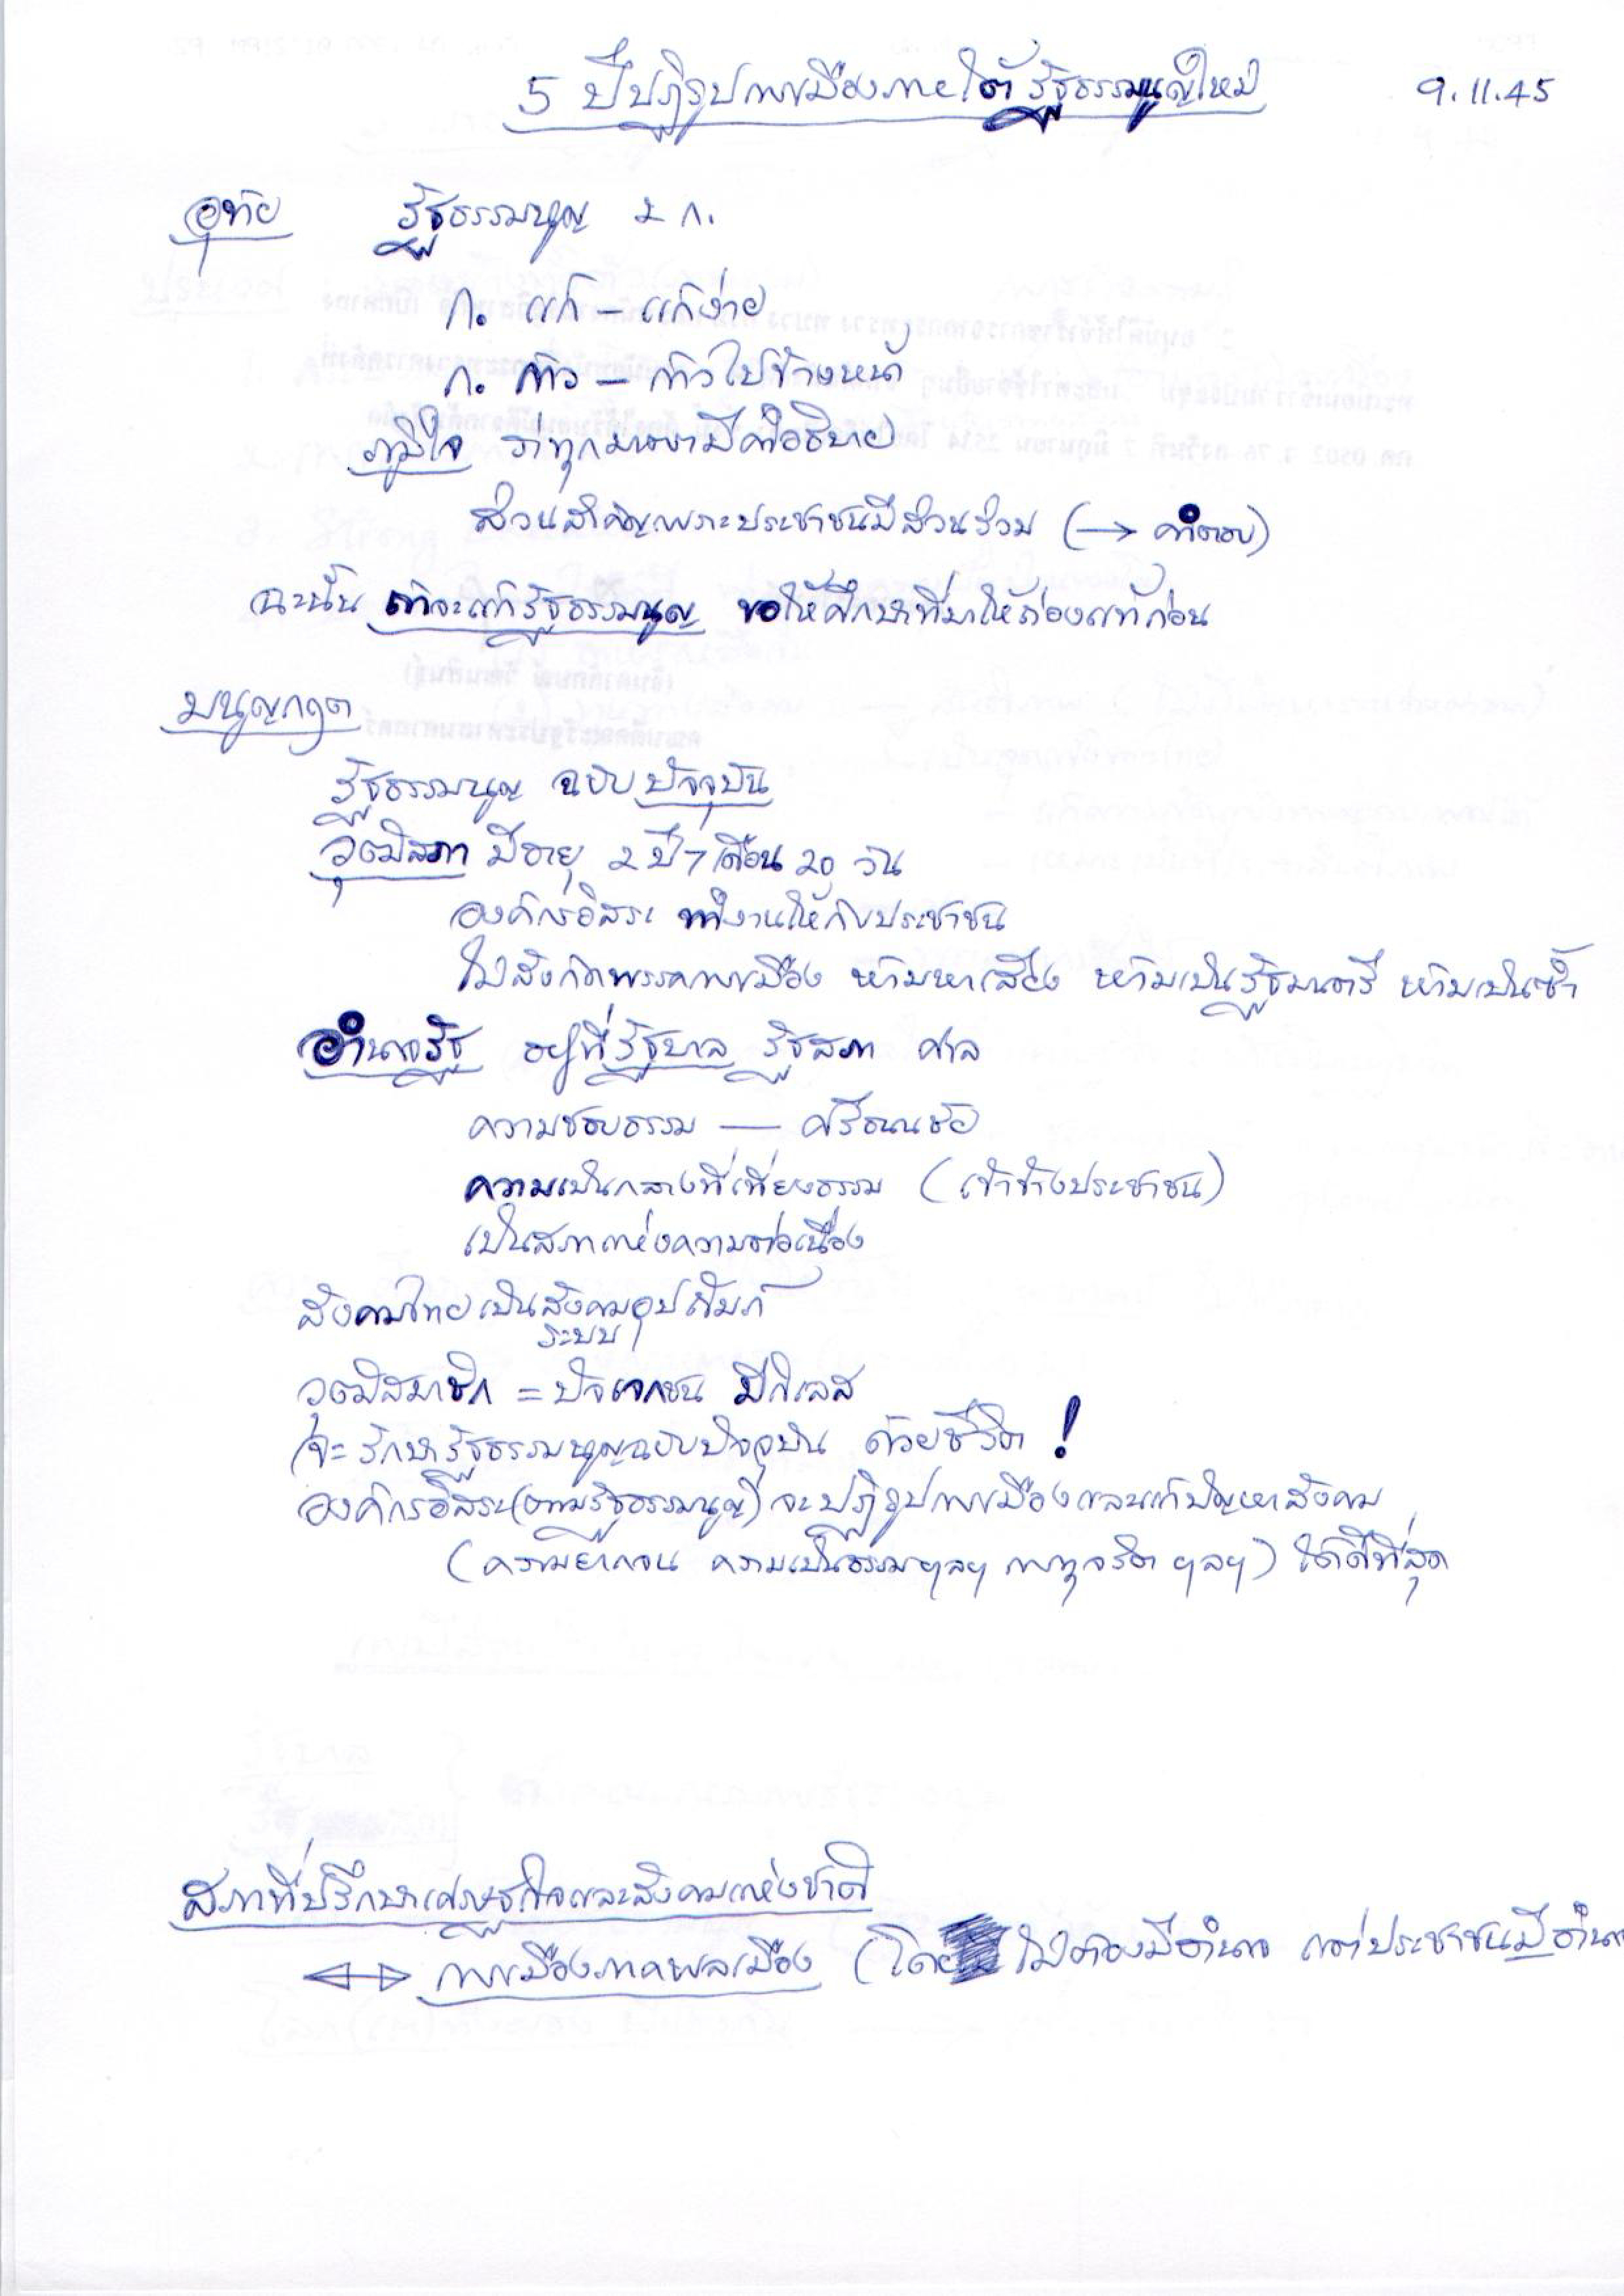 5 ปีปฏิรูปการเมืองภายใต้รัฐธรรมนูญใหม่ 9.11.45
อุทัย รัฐธรรมนูญ 2 ก.
ก. แก้ – แก้ง่าย
ก. ก้าว – ก้าวไปข้างหน้า
ภูมิใจ ว่าทุกมาตรามีคำอธิบาย
ส่วนสำคัญเพราะประชาชนมีส่วนร่วม (→ คำตอบ)
ฉะนั้น ถ้าจะแก้รัฐธรรมนูญ ขอให้ศึกษาที่มาให้ถ่องแท้ก่อน
มนูญกฤต
รัฐธรรมนูญ ฉบับปัจจุบัน
วุฒิสภา มีอายุ 2 ปี 7 เดือน 20 วัน
องค์กรอิสระ ทำงานให้กับประชาชน
ไม่สังกัดพรรคการเมือง ห้ามหาเสียง ห้ามเป็นรัฐมนตรี ห้ามเป็นซ้ำ
อำนาจรัฐ อยู่ที่รัฐบาล รัฐสภา ศาล
ความชอบธรรม — ศรีธนนชัย
ความเป็นกลางที่เที่ยงธรรม (เข้าข้างประชาชน)
เป็นสภาแห่งความต่อเนื่อง
สังคมไทยเป็นสังคมอุปถัมภ์
ระบบ
วุฒิสมาชิก = ปัจเจกชน มีกิเลส
จะรักษารัฐธรรมนูญฉบับปัจจุบัน ด้วยชีวิต !
องค์กรอิสระ(ตามรัฐธรรมนูญ) จะปฏิรูปการเมืองและแก้ปัญหาสังคม
(ความยากจน ความเป็นธรรม ฯลฯ การทุจริต ฯลฯ) ได้ดีที่สุด
สภาที่ปรึกษาเศรษฐกิจและสังคมแห่งชาติ
↔ การเมืองภาคพลเมือง (โดย ไม่ต้องมีอำนาจ แต่ประชาชนมีอำนาจ